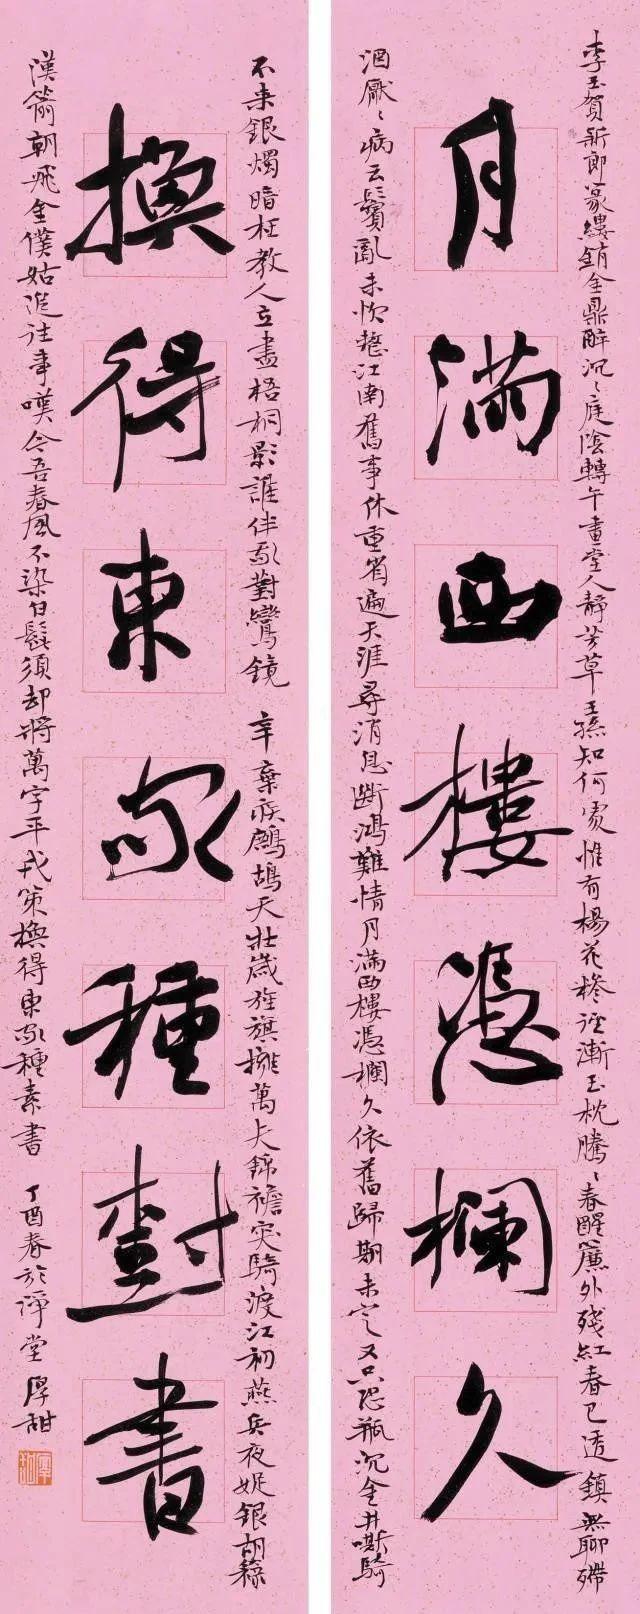 李玉賀新郎篆縷銷金鼎醉沉々庭陰轉午畫堂人靜芳草王孫知何處惟有楊花糝徑漸玉枕騰々春醒簾外殘紅春已透鎮無聊殢
月滿西樓憑欄久
酒厭々病云鬢亂未忺整江南舊事休重省遍天涯尋消息斷鴻難情月滿西樓憑欄久依舊歸期未定又只恐瓶沉金井嘶騎
不來銀燭暗枉教人立盡梧桐影誰伴我對鸞鏡 辛棄疾鷓鴣天壯歲旌旗擁萬夫錦襜突騎渡江初燕兵夜娖銀胡簶
換得東家種樹書
漢箭朝飛金僕姑追往事嘆今吾春風不染白髭須却將萬字平戎策換得東家種樹書 丁酉春於淨堂厚甜